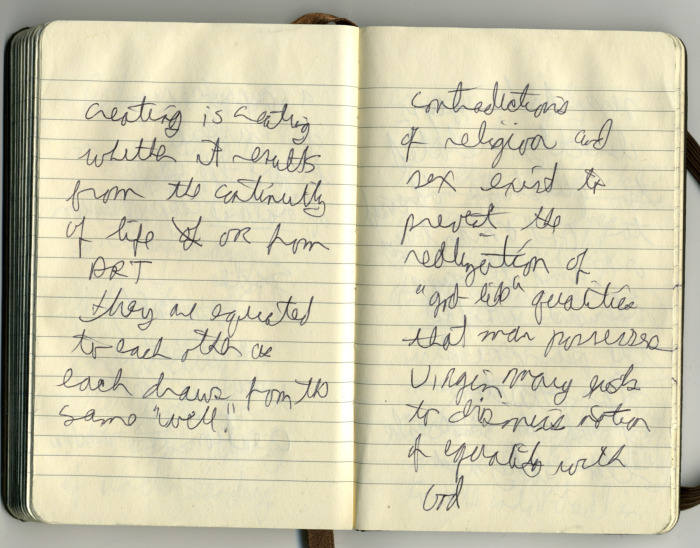 creating is creating
whether it results
from the continuity
of life or from
ART
they are equated
to each other as
each draws from the
same "well."
contradictions
of religion and
sex exist to
prevent the
realization of
"god like" qualities
that man possesses
Virgin Mary
to dismiss notion
of equality with
God